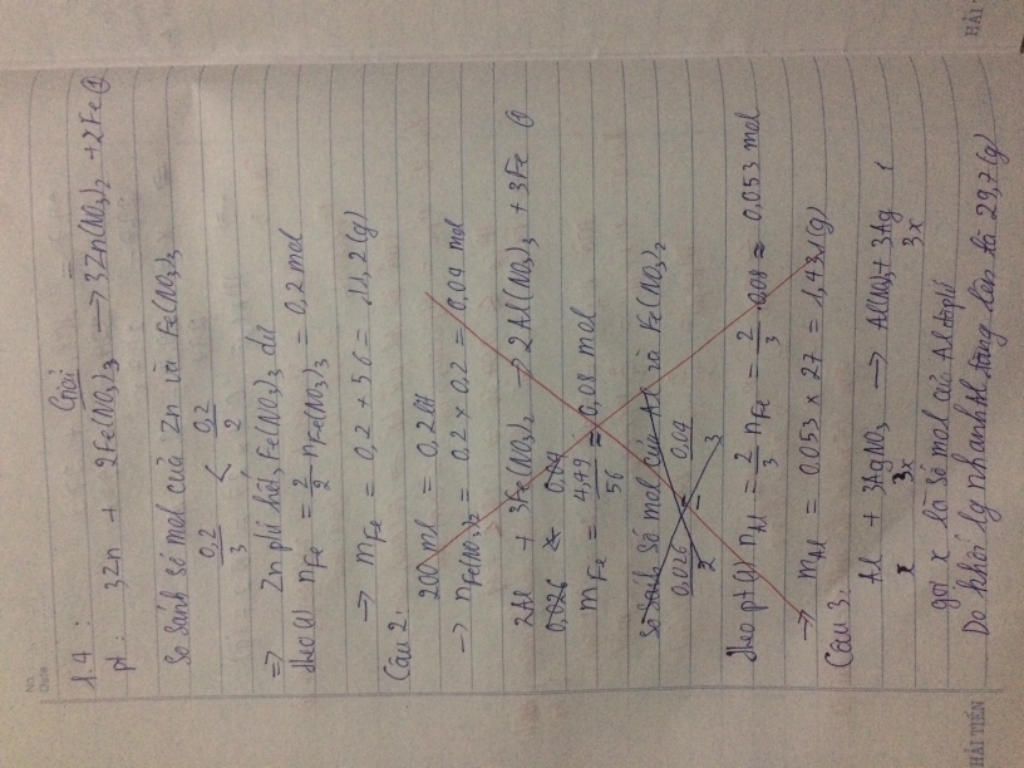 No.
Date
Giải
1.4 :
pt: 3Zn + 2Fe(NO₃)₃ → 3Zn(NO₃)₂ + 2Fe ①
So sánh số mol của Zn và Fe(NO₃)₃
0,2/3 < 0,2/2
⇒ Zn p/ứ hết, Fe(NO₃)₃ dư
theo (1) nFe = 2/2 nFe(NO₃)₃ = 0,2 mol
→ mFe = 0,2 × 56 = 11,2 (g)
Câu 2.
200 ml = 0,2 lít
→ nFe(NO₃)₂ = 0,2 × 0,2 = 0,04 mol
2Al + 3Fe(NO₃)₂ → 2Al(NO₃)₃ + 3Fe ①
0,026 0,04
mFe = 4,49/56 ≈ 0,08 mol
So sánh số mol của Al và Fe(NO₃)₂
0,026/2 0,04/3
theo pt(1) nAl = 2/3 nFe = 2/3 0,08 ≈ 0,053 mol
→ mAl = 0,053 × 27 = 1,431 (g)
Câu 3.
Al + 3AgNO₃ → Al(NO₃)₃ + 3Ag ↓
x 3x 3x
gọi x là số mol của Al
Do khối lg nhanh tăng lên là 29,7 (g)
HẢI TIẾN
HẢI